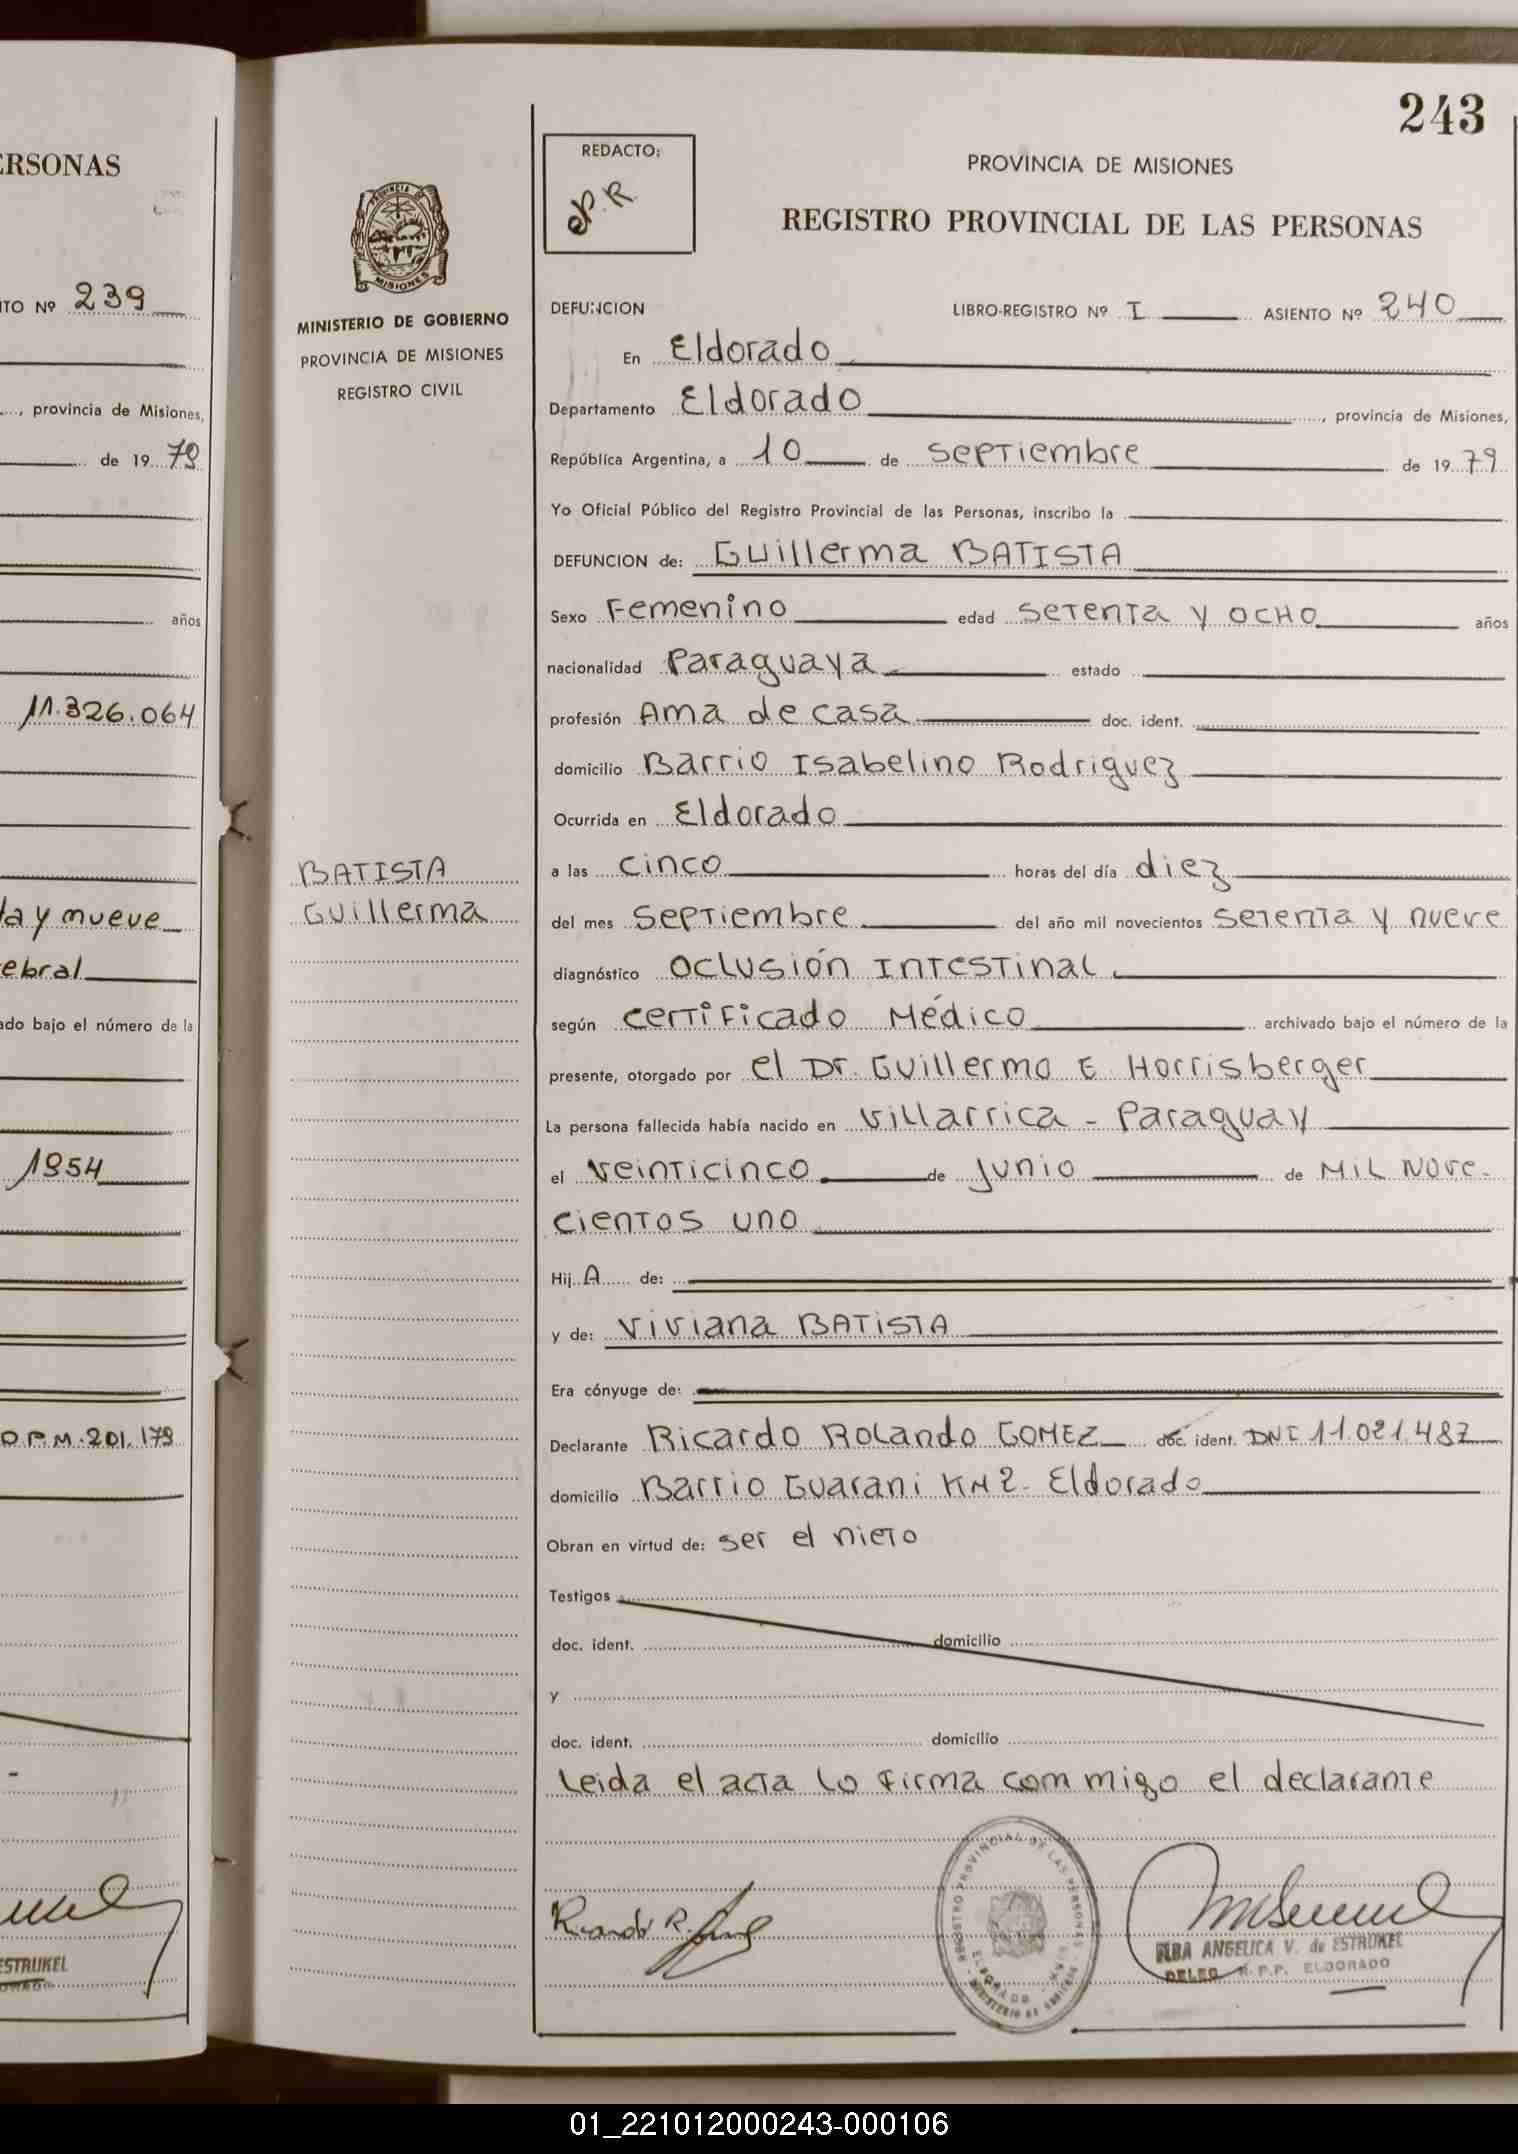 ERSONAS
TO Nº 239
..., provincia de Misiones,
de 1979
años
11.326.064
da y mueve
ebral
ado bajo el número de la
1954
D.P.M. 201.179
ESTRUKEL
243
REDACTO:
P.R.
PROVINCIA DE MISIONES
REGISTRO PROVINCIAL DE LAS PERSONAS
PROVINCIA DE
MISIONES
MINISTERIO DE GOBIERNO
PROVINCIA DE MISIONES
REGISTRO CIVIL
BATISTA
Guillerma
DEFUNCION LIBRO-REGISTRO Nº I ASIENTO Nº 240
En Eldorado
Departamento Eldorado, provincia de Misiones,
República Argentina, a 10 de septiembre de 1979
Yo Oficial Público del Registro Provincial de las Personas, inscribo la
DEFUNCION de: Guillerma BATISTA
Sexo Femenino edad setenta y ocho años
nacionalidad Paraguaya estado
profesión Ama de casa doc. ident.
domicilio Barrio Isabelino Rodriguez
Ocurrida en Eldorado
a las cinco horas del día diez
del mes septiembre del año mil novecientos setenta y nueve
diagnóstico oclusión intestinal
según certificado Médico archivado bajo el número de la
presente, otorgado por el Dr. Guillermo E. Horrisberger
La persona fallecida había nacido en Villarrica - Paraguay
el veinticinco de junio de mil nove-
cientos uno
Hij A de:
y de: Viviana BATISTA
Era cónyuge de:
Declarante Ricardo Rolando GOMEZ doc. ident. DNI 11.021.487
domicilio Barrio Guarani KM 2 - Eldorado
Obran en virtud de: ser el nieto
Testigos
doc. ident. domicilio
y
doc. ident. domicilio
Leida el acta lo firma com migo el declarante
Ricardo R.
REGISTRO PROVINCIAL DE LAS PERSONAS
ELDORADO
ELBA ANGELICA V. de ESTRUKEL
DELEG. R.P.P. ELDORADO
01_221012000243-000106